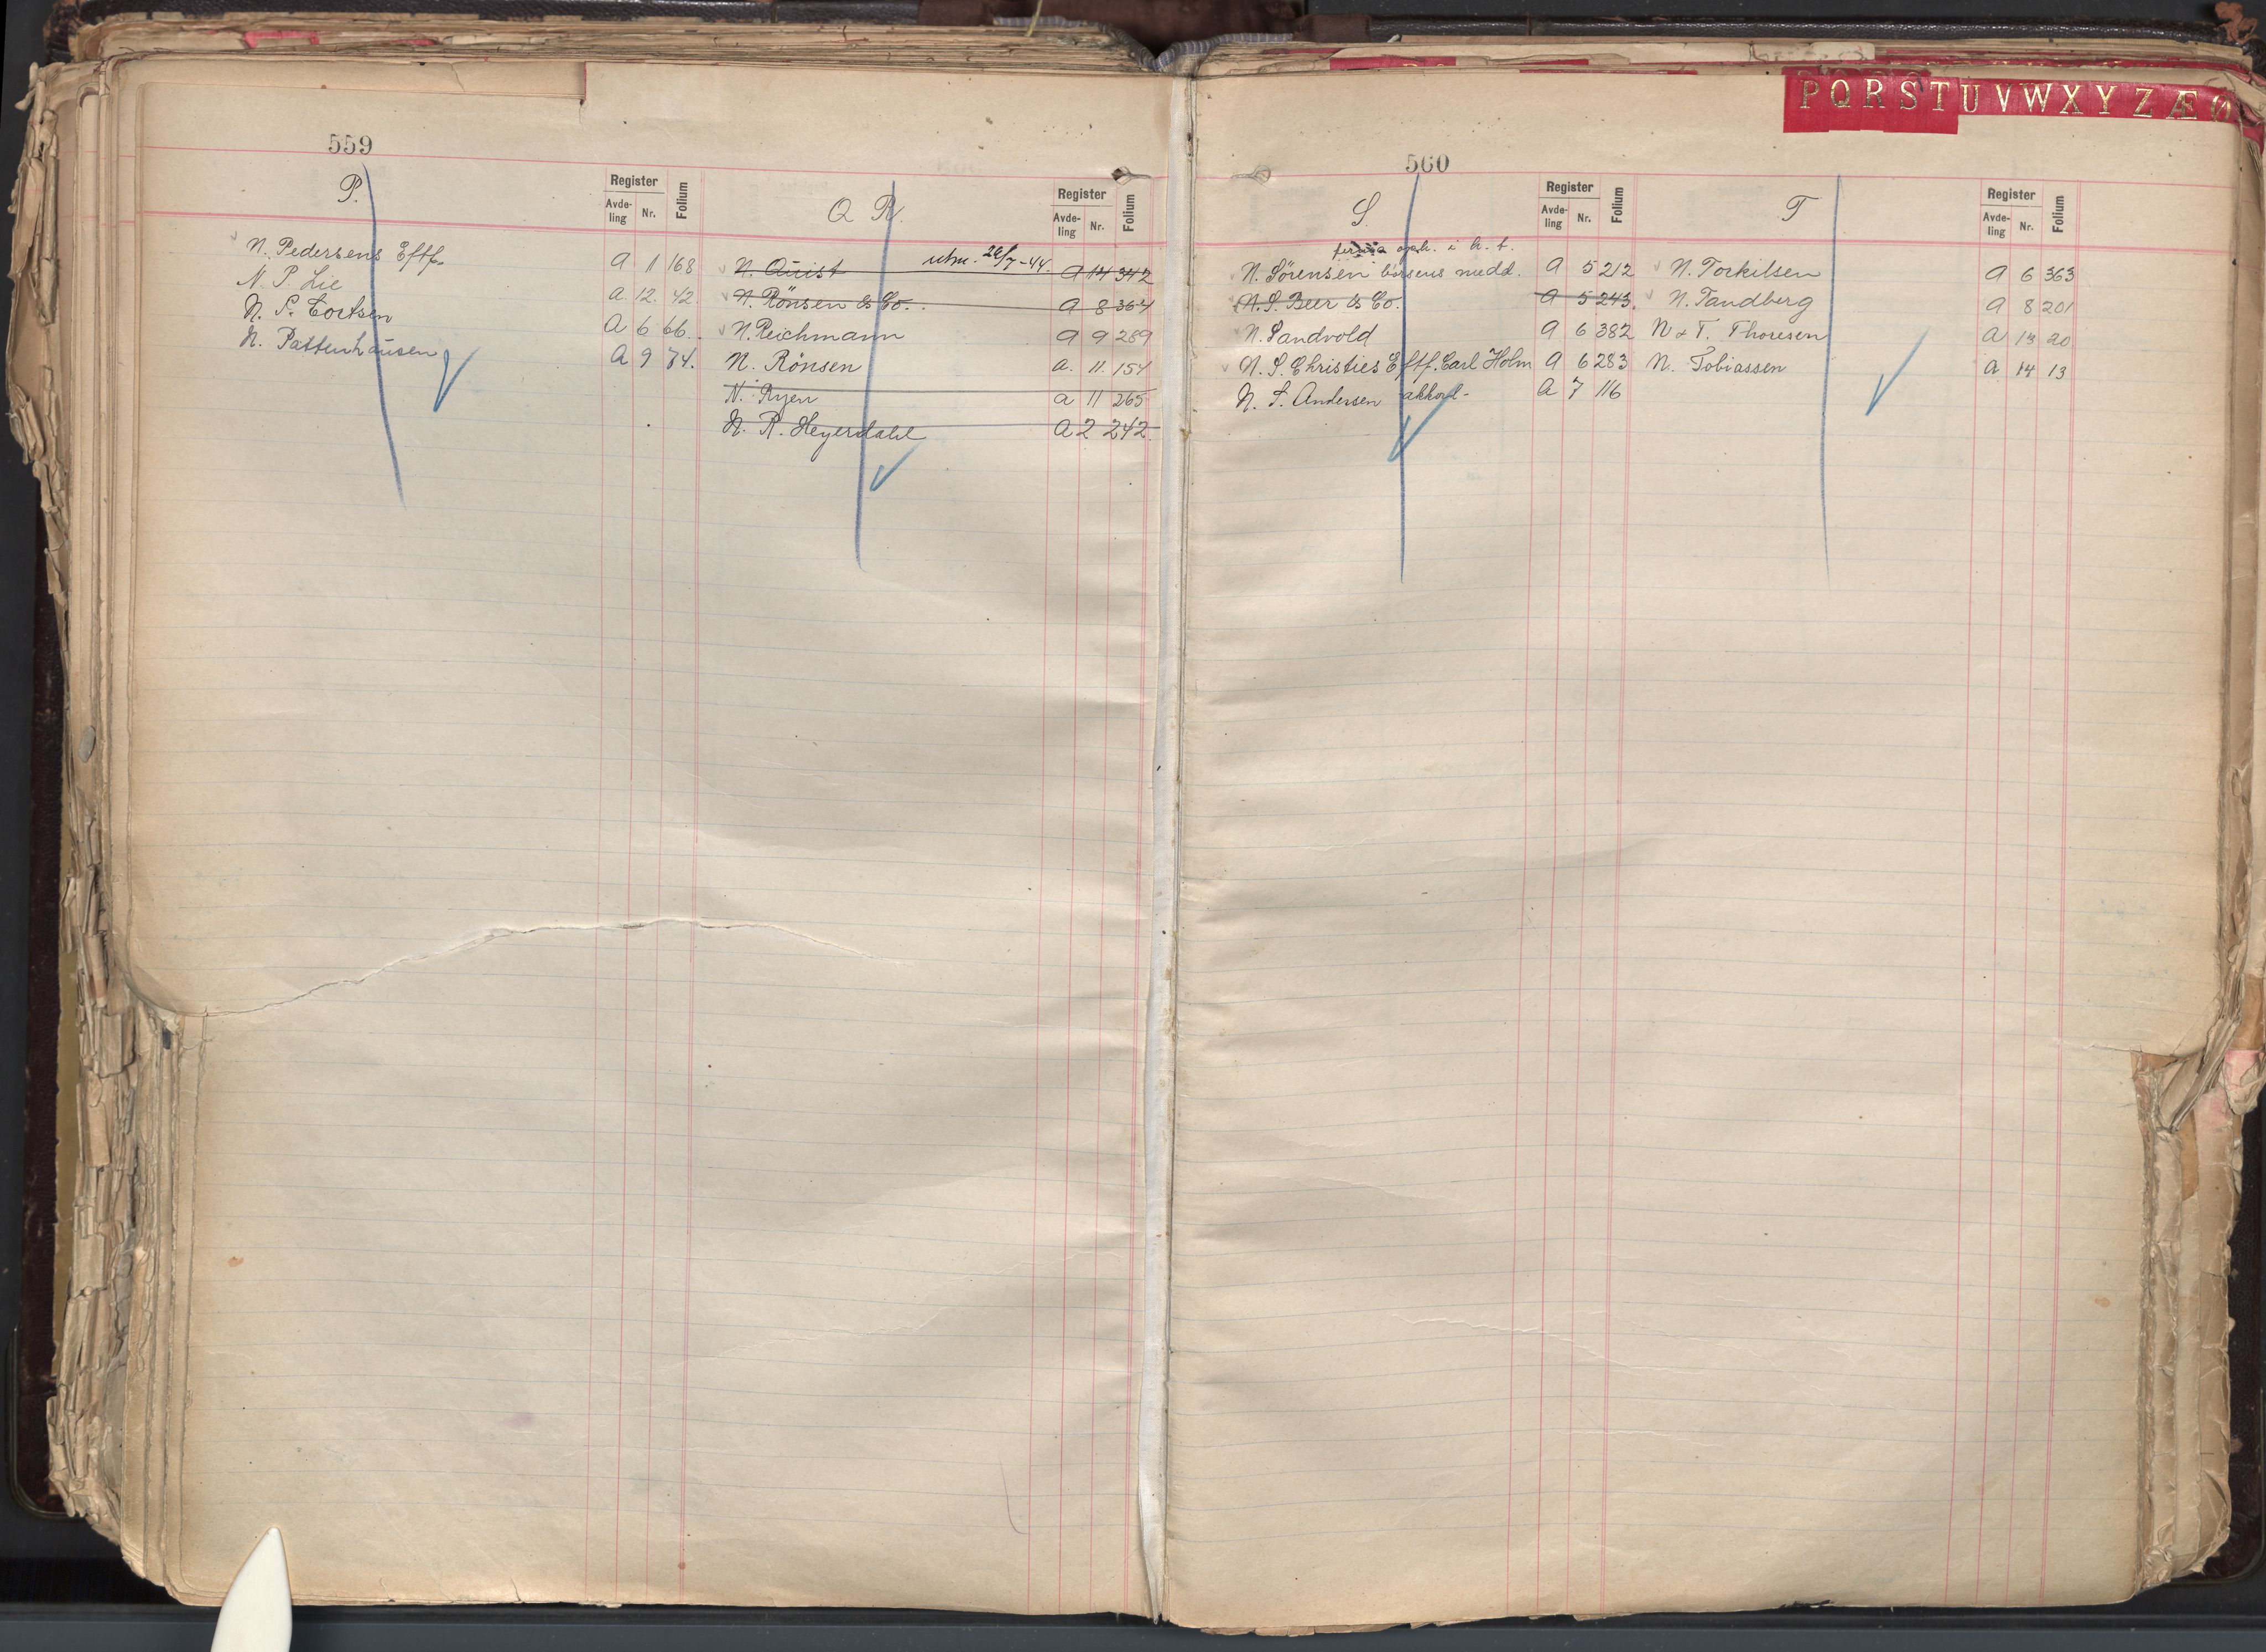 PQRSTUVWXYZÆØ
559
P.
Register
Avde-
ling
Nr.
Folium
N. Pedersens Eftf. A 11 168
N. P. Lie A. 12. 42
N. P. A 6 66.
N. Pattenhausen A 9 74.
Q R.
Register
Avde-
ling
Nr.
Folium
N. Quist utm. 24/7-44. A 14 342
N. Rönsen & Co. A 8 364
N. Reichmann A 9 289
N. Rönsen A. 11. 154
N. Ryen A 11 265
N. R. Heyerdahl A 2 242
560
S.
Register
Avde-
ling
Nr.
Folium
i h. t.
N. Sörensen börsens medd. A 5 212
N. S. Beer & Co. A 5 243.
N. Sandvold A 6 382
N. S. Christies Eftf. Carl Holm A 6 283
N. S. Andersen akkord- A 7 116
T
Register
Avde-
ling
Nr.
Folium
N. Torkilsen A 6 363
N. Tandberg A 8 201
N & T. Thoresen A 13 20
N. Tobiassen A 14 13